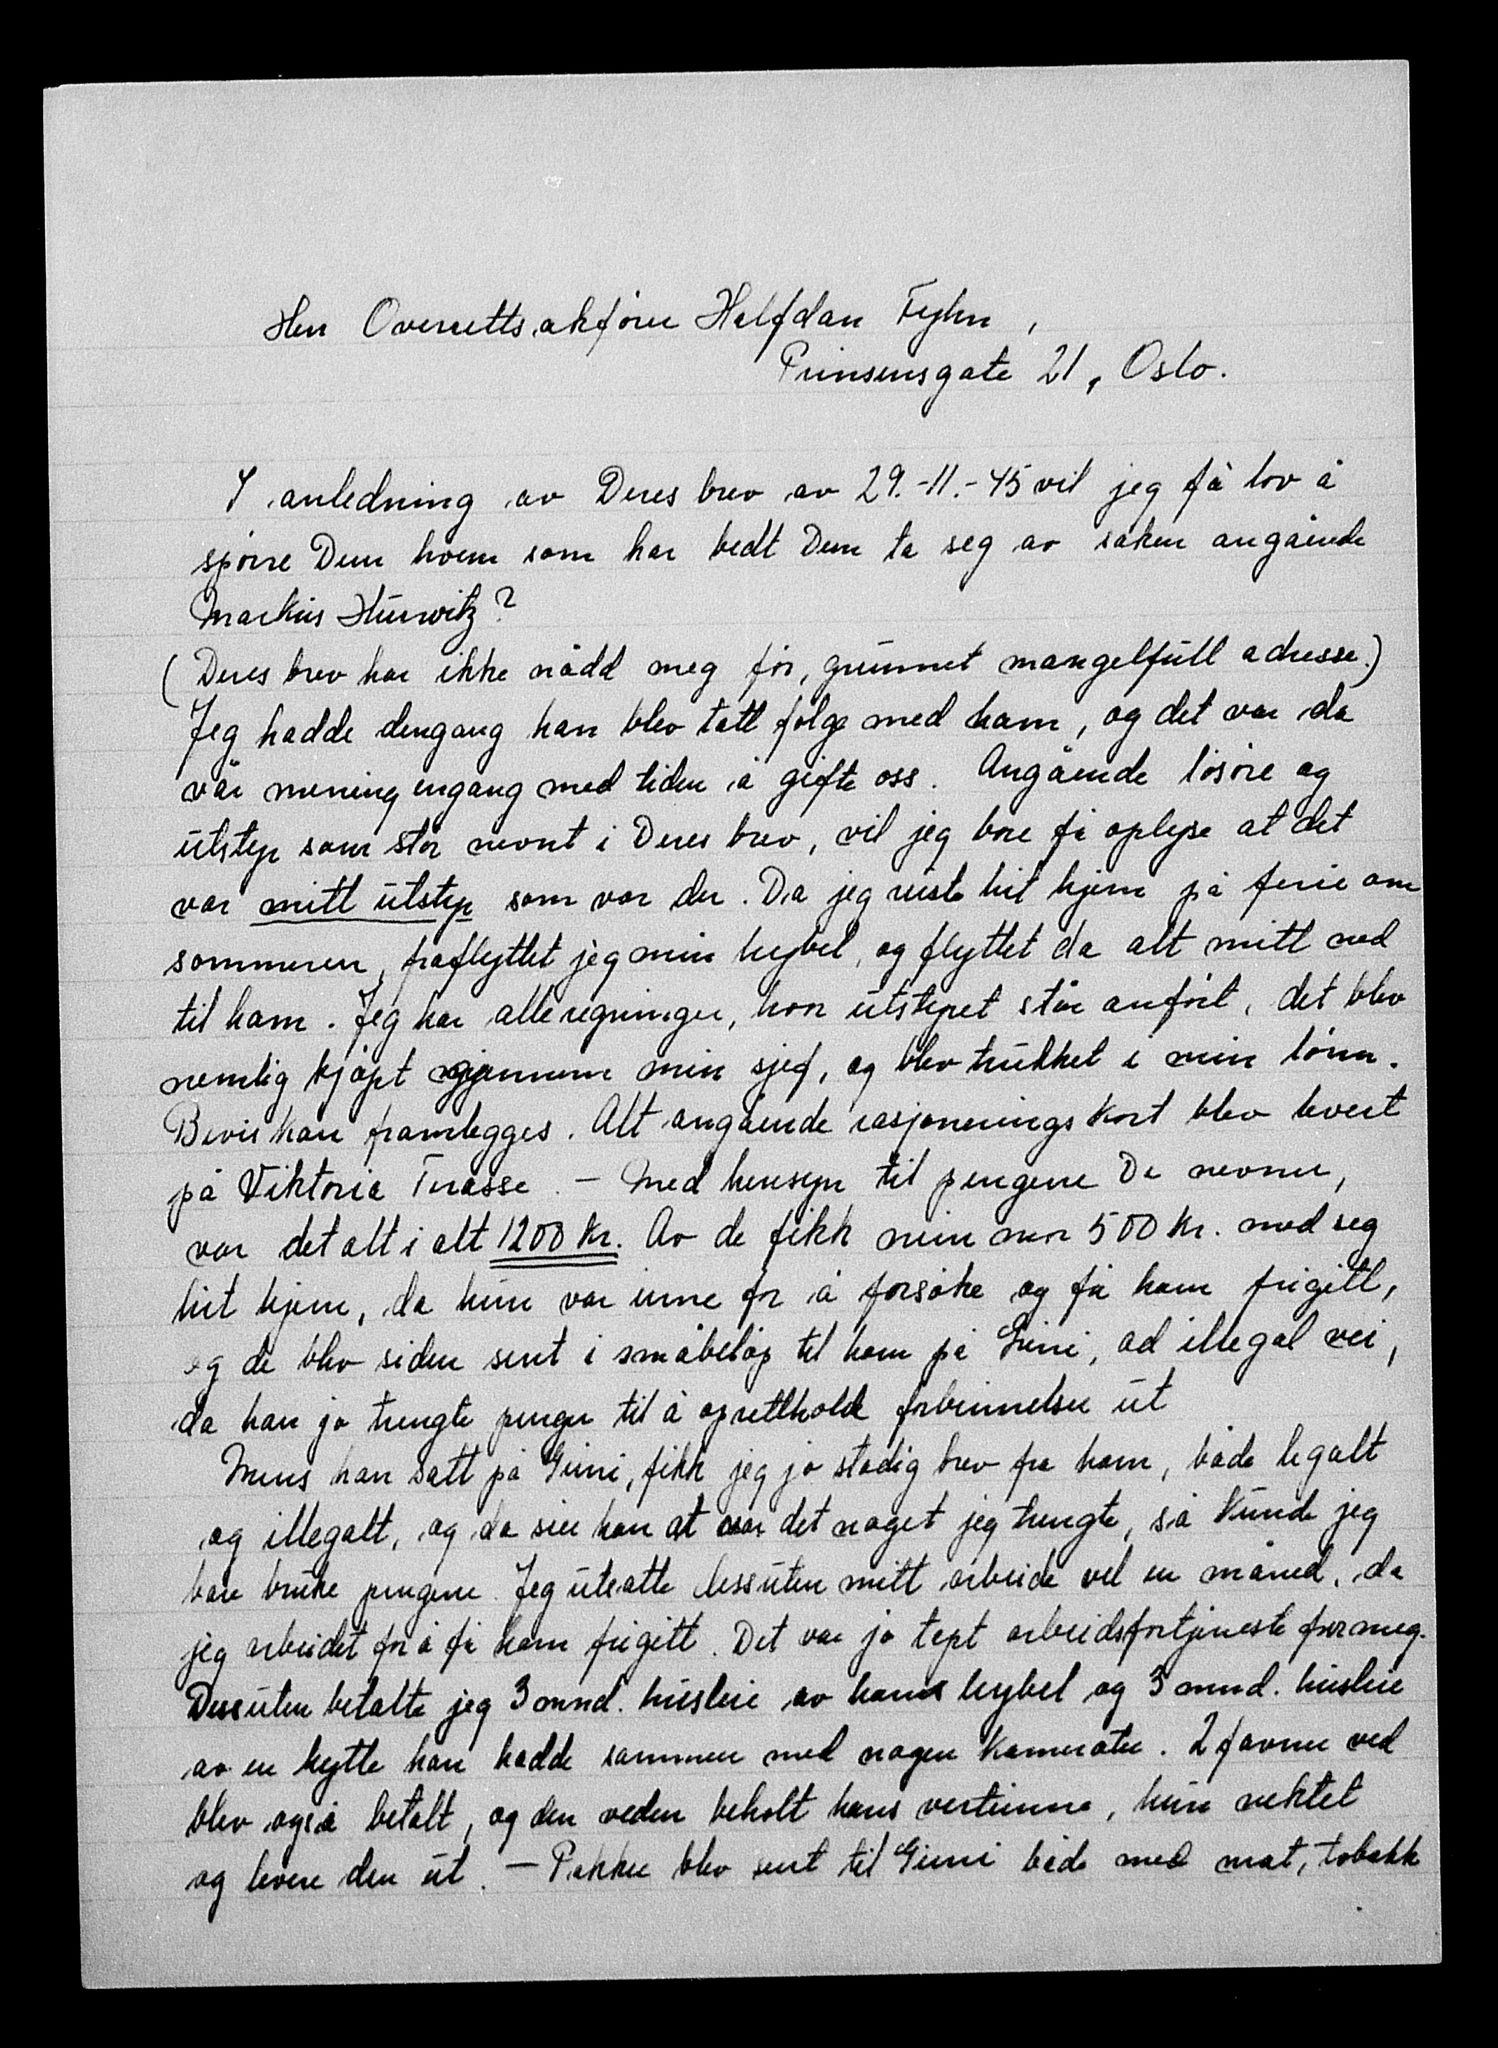 Herr Overrettssakfører Halfdan Fejhn,
Prinsensgate 21, Oslo.
I anledning av Deres brev av 29.-11.-45 vil jeg få lov å
spörre Dem hvem som har bedt Dem ta seg av saken angående
Markus Hurwitz?
(Deres brev har ikke nådd meg før, grunnet mangelfull adresse.)
Jeg hadde dengang han blev tatt følge med ham, og det var da
vår mening engang med tiden å gifte oss. Angående lösöre og
utstyr som står nevnt i Deres brev, vil jeg bare få oplyse at det
var mitt utstyr som var der. Da jeg reiste hit hjem på ferie om
sommeren, fraflyttet jeg min hybel, og flyttet da alt mitt ned
til ham. Jeg har alle regninger, hvor utstyret står anført, det blev
nemlig kjøpt gjennem min sjef, og blev trukket i min lønn.
Bevis kan framlegges. Alt angående rasjoneringskort blev levert
på Viktoria Terasse. - Med hensyn til pengene De nevner,
var det alt i alt 1200 kr. Av de fikk min mor 500 kr. med seg
hit hjem, da hun var inne for å forsøke og få ham frigitt,
og de blev siden sent i småbeløp til ham på Grini, ad illegal vei,
da han jo trengte penger til å oprettholde forbinnelser ut
Mens han satt på Grini, fikk jeg jo stadig brev fra ham, både legalt
og illegalt, og da sier han at var det noget jeg trengte, så kunde jeg
bare bruke pengene. Jeg utsatte dessuten mitt arbeide vel en måned, da
jeg arbeidet for å få ham frigitt. Det var jo tapt arbeidsfortjeneste for meg.
Dessuten betalte jeg 3 mnd. husleie av hans hybel og 3 mnd. husleie
av en hytte han hadde sammen med nogen kamerater. 2 favner ved
blev også betalt, og den veden beholt hans vertinne, hun nektet
og levere den ut. - Pakker blev sent til Grini både med mat, tobakk